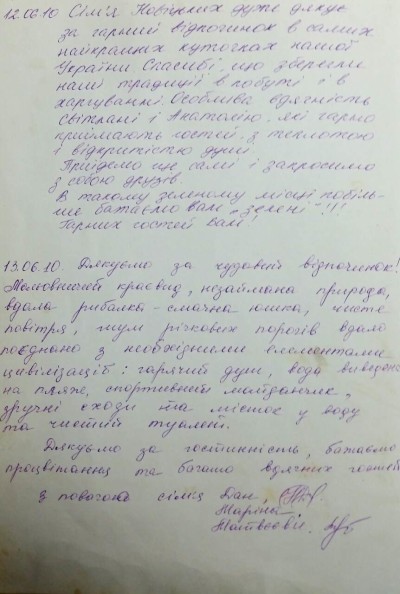 12.06.10 Сім'я дуже дякує
за гарний відпочинок в самих
найкращих куточках нашої
України. Спасибі, що зберегли
наші традиції в побуті і в
харчуванні. Особлива вдячність
Світлані і Анатолію, які гарно
приймають гостей, з теплотою
і відкритістю душі.
Приїдемо ще самі і запросимо
з собою друзів.
В такому зеленому місці побіль-
ше бажаємо Вам „зелені"!!!
Гарних гостей Вам!
13.06.10. Дякуємо за чудовий відпочинок!
Мальовничий краєвид, незаймана природа,
вдала рибалка - смачна юшка, чисте
повітря, шум річкових порогів вдало
поєднано з необхідними елементами
цивілізації: гарячий душ, вода
на пляже, спортивний майданчик,
зручні сходи та місток у воду
та чистий туалет.
Дякуємо за гостинність, бажаємо
процвітання та багато вдячних гостей
З повагою сім'я Дан,
Марина